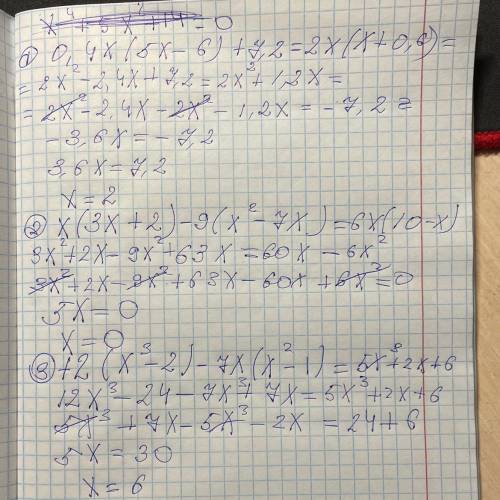 x⁴ + 5x² + 4 = 0
① 0,4x(5x-6)+7,2=2x(x+0,6)=
=2x²-2,4x+7,2=2x²+1,2x=
=2x²-2,4x-2x²-1,2x=-7,2=
-3,6x=-7,2
3,6x=7,2
x=2
② x(3x+2)-9(x²-7x)=6x(10-x)
3x²+2x-9x²+63x=60x-6x²
3x²+2x-9x²+63x-60x+6x²=0
5x=0
x=0
③ 12(x³-2)-7x(x²-1)=5x³+2x+6
12x³-24-7x³+7x=5x³+2x+6
5x³+7x-5x³-2x=24+6
5x=30
x=6